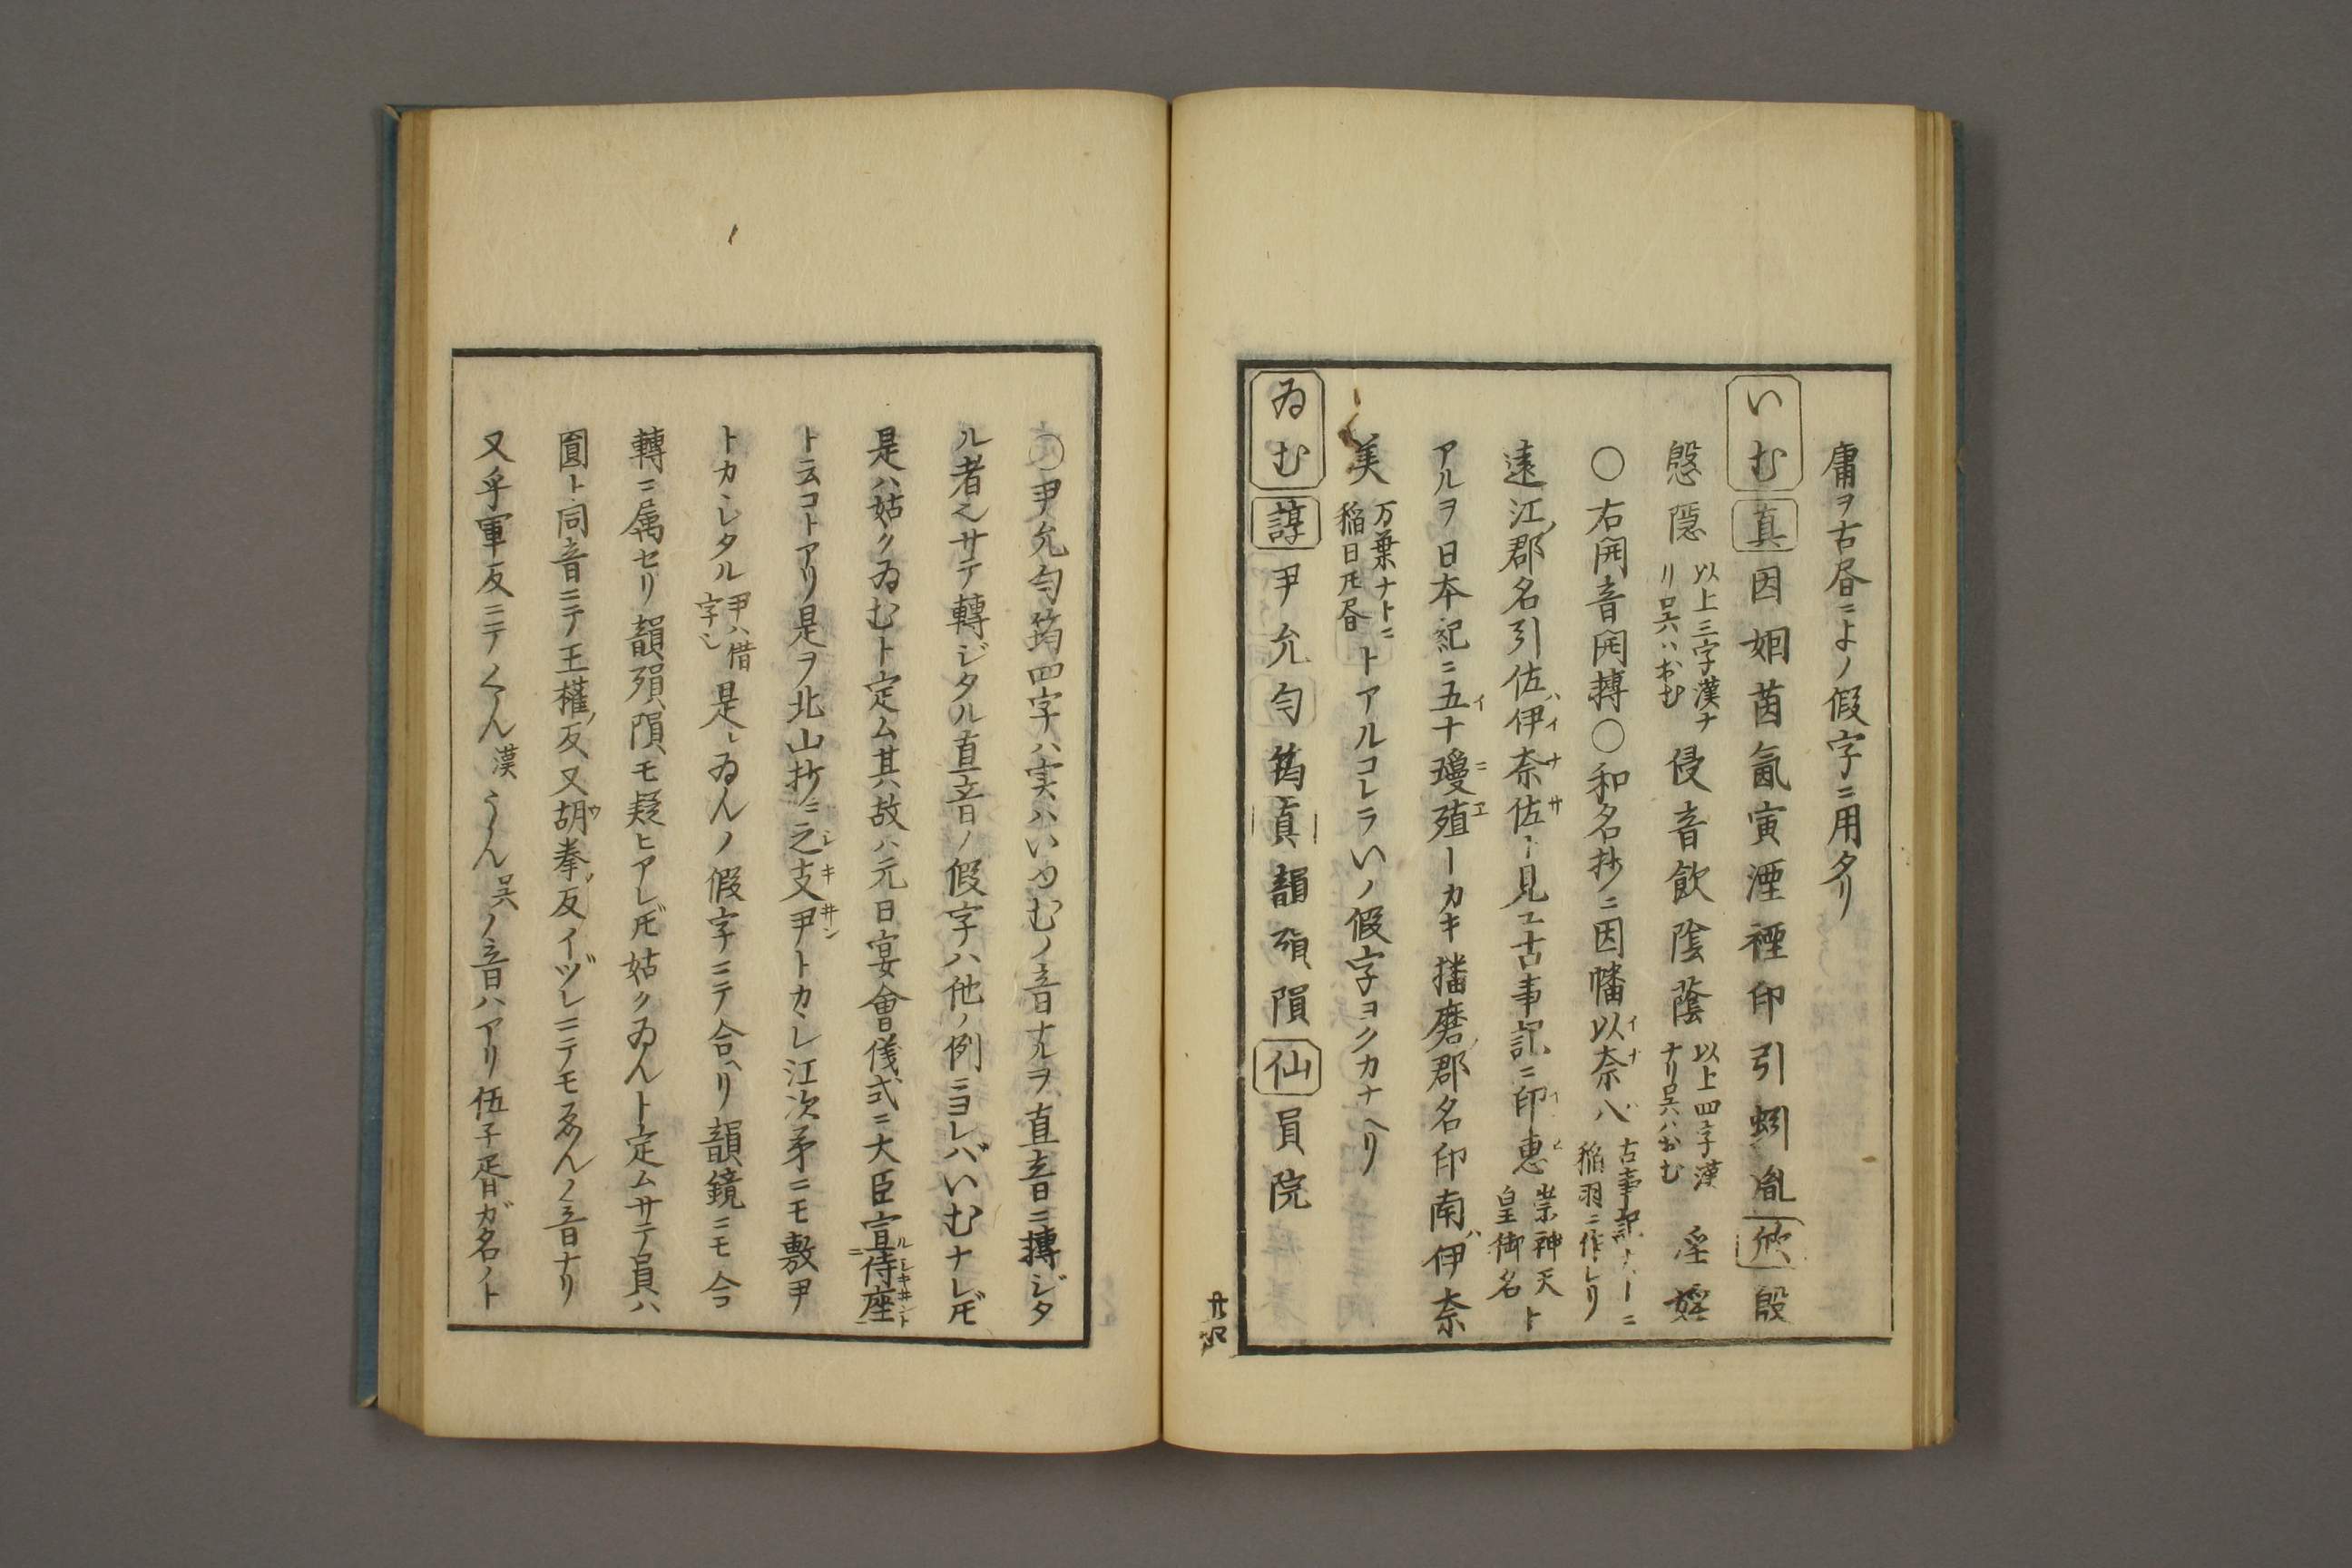 庸ヲ古昼ニよノ假字ニ用タリ
いむ 真 因姻茵氤寅湮禋印引蚓胤 欣 殷
慇隠 以上三字漢ナリ呉ハおむ 侵音飲陰蔭 以上四字漢ナリ呉ハおむ 淫婬
〇右開音開轉〇和名抄ニ因幡以奈八 古事記ナドニ稲羽ニ作レリ
遠江ノ郡名引佐ハ伊奈佐ト見ユ古事記ニ印惠 崇神天皇御名 ト
アルヲ日本紀ニ五十瓊殖トカキ播磨ノ郡名印南ハ伊奈
美 万葉ナトニ稲日𪜈昼 トアルコレラいノ假字ヨクカナヘリ
ゐむ 諄 尹允匀筠 真 韻殞隕 仙 員院
〇尹允匀筠四字ハ実ハいゆむノ音ナルヲ直音ニ轉ジタ
ル者也サテ轉ジタル直音ノ假字ハ他ノ例ニヨレバいむナレ𪜈
是ハ姑クゐむト定ム其故ハ元日宴會儀式ニ大臣宣侍座
ト云コトアリ是ヲ北山抄ニ之支尹トカヽレ江次㐧ニモ敷尹
トカヽレタル 尹ハ借字也 是レゐんノ假字ニテ合ヘリ韻鏡ニモ合
轉ニ属セリ韻殞隕モ疑ヒアレ𪜈姑クゐんト定ムサテ員ハ
圓ト同音ニテ王權ノ反又胡拳ノ反イヅレニテモゑんノ音ナリ
又乎軍反ニテくん 漢 うん 呉 ノ音ハアリ伍子胥ガ名ノト